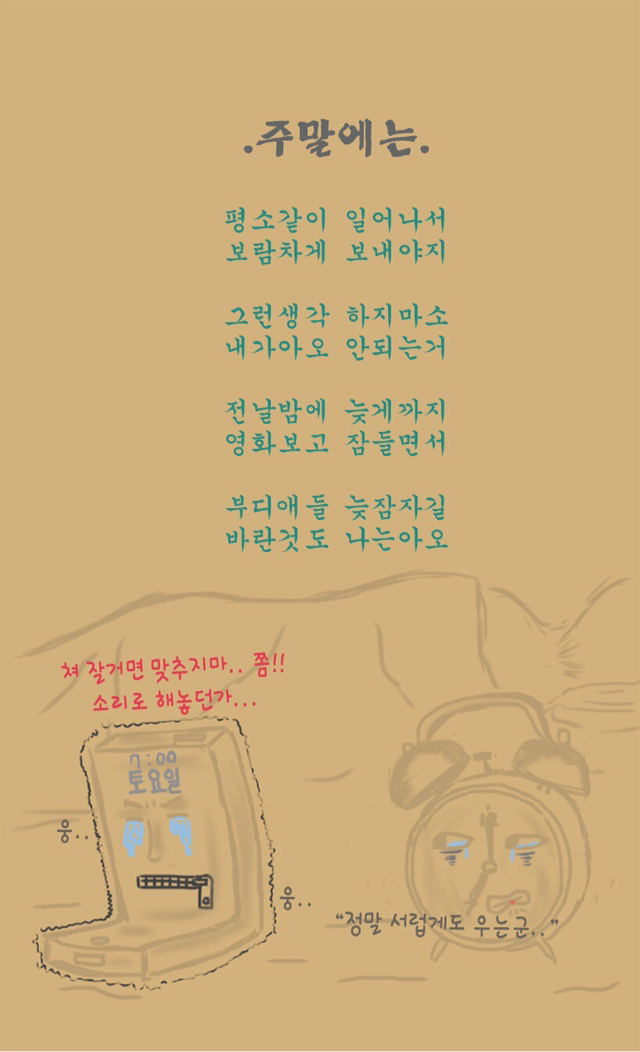 .주말에는.
평소같이 일어나서
보람차게 보내야지
그런생각 하지마소
내가아오 안되는거
전날밤에 늦게까지
영화보고 잠들면서
부디애들 늦잠자길
바란것도 나는아오
쳐 잘거면 맞추지마.. 쫌!!
소리로 해놓던가...
7:00
토요일
웅..
웅..
"정말 서럽게도 우는군.."
12